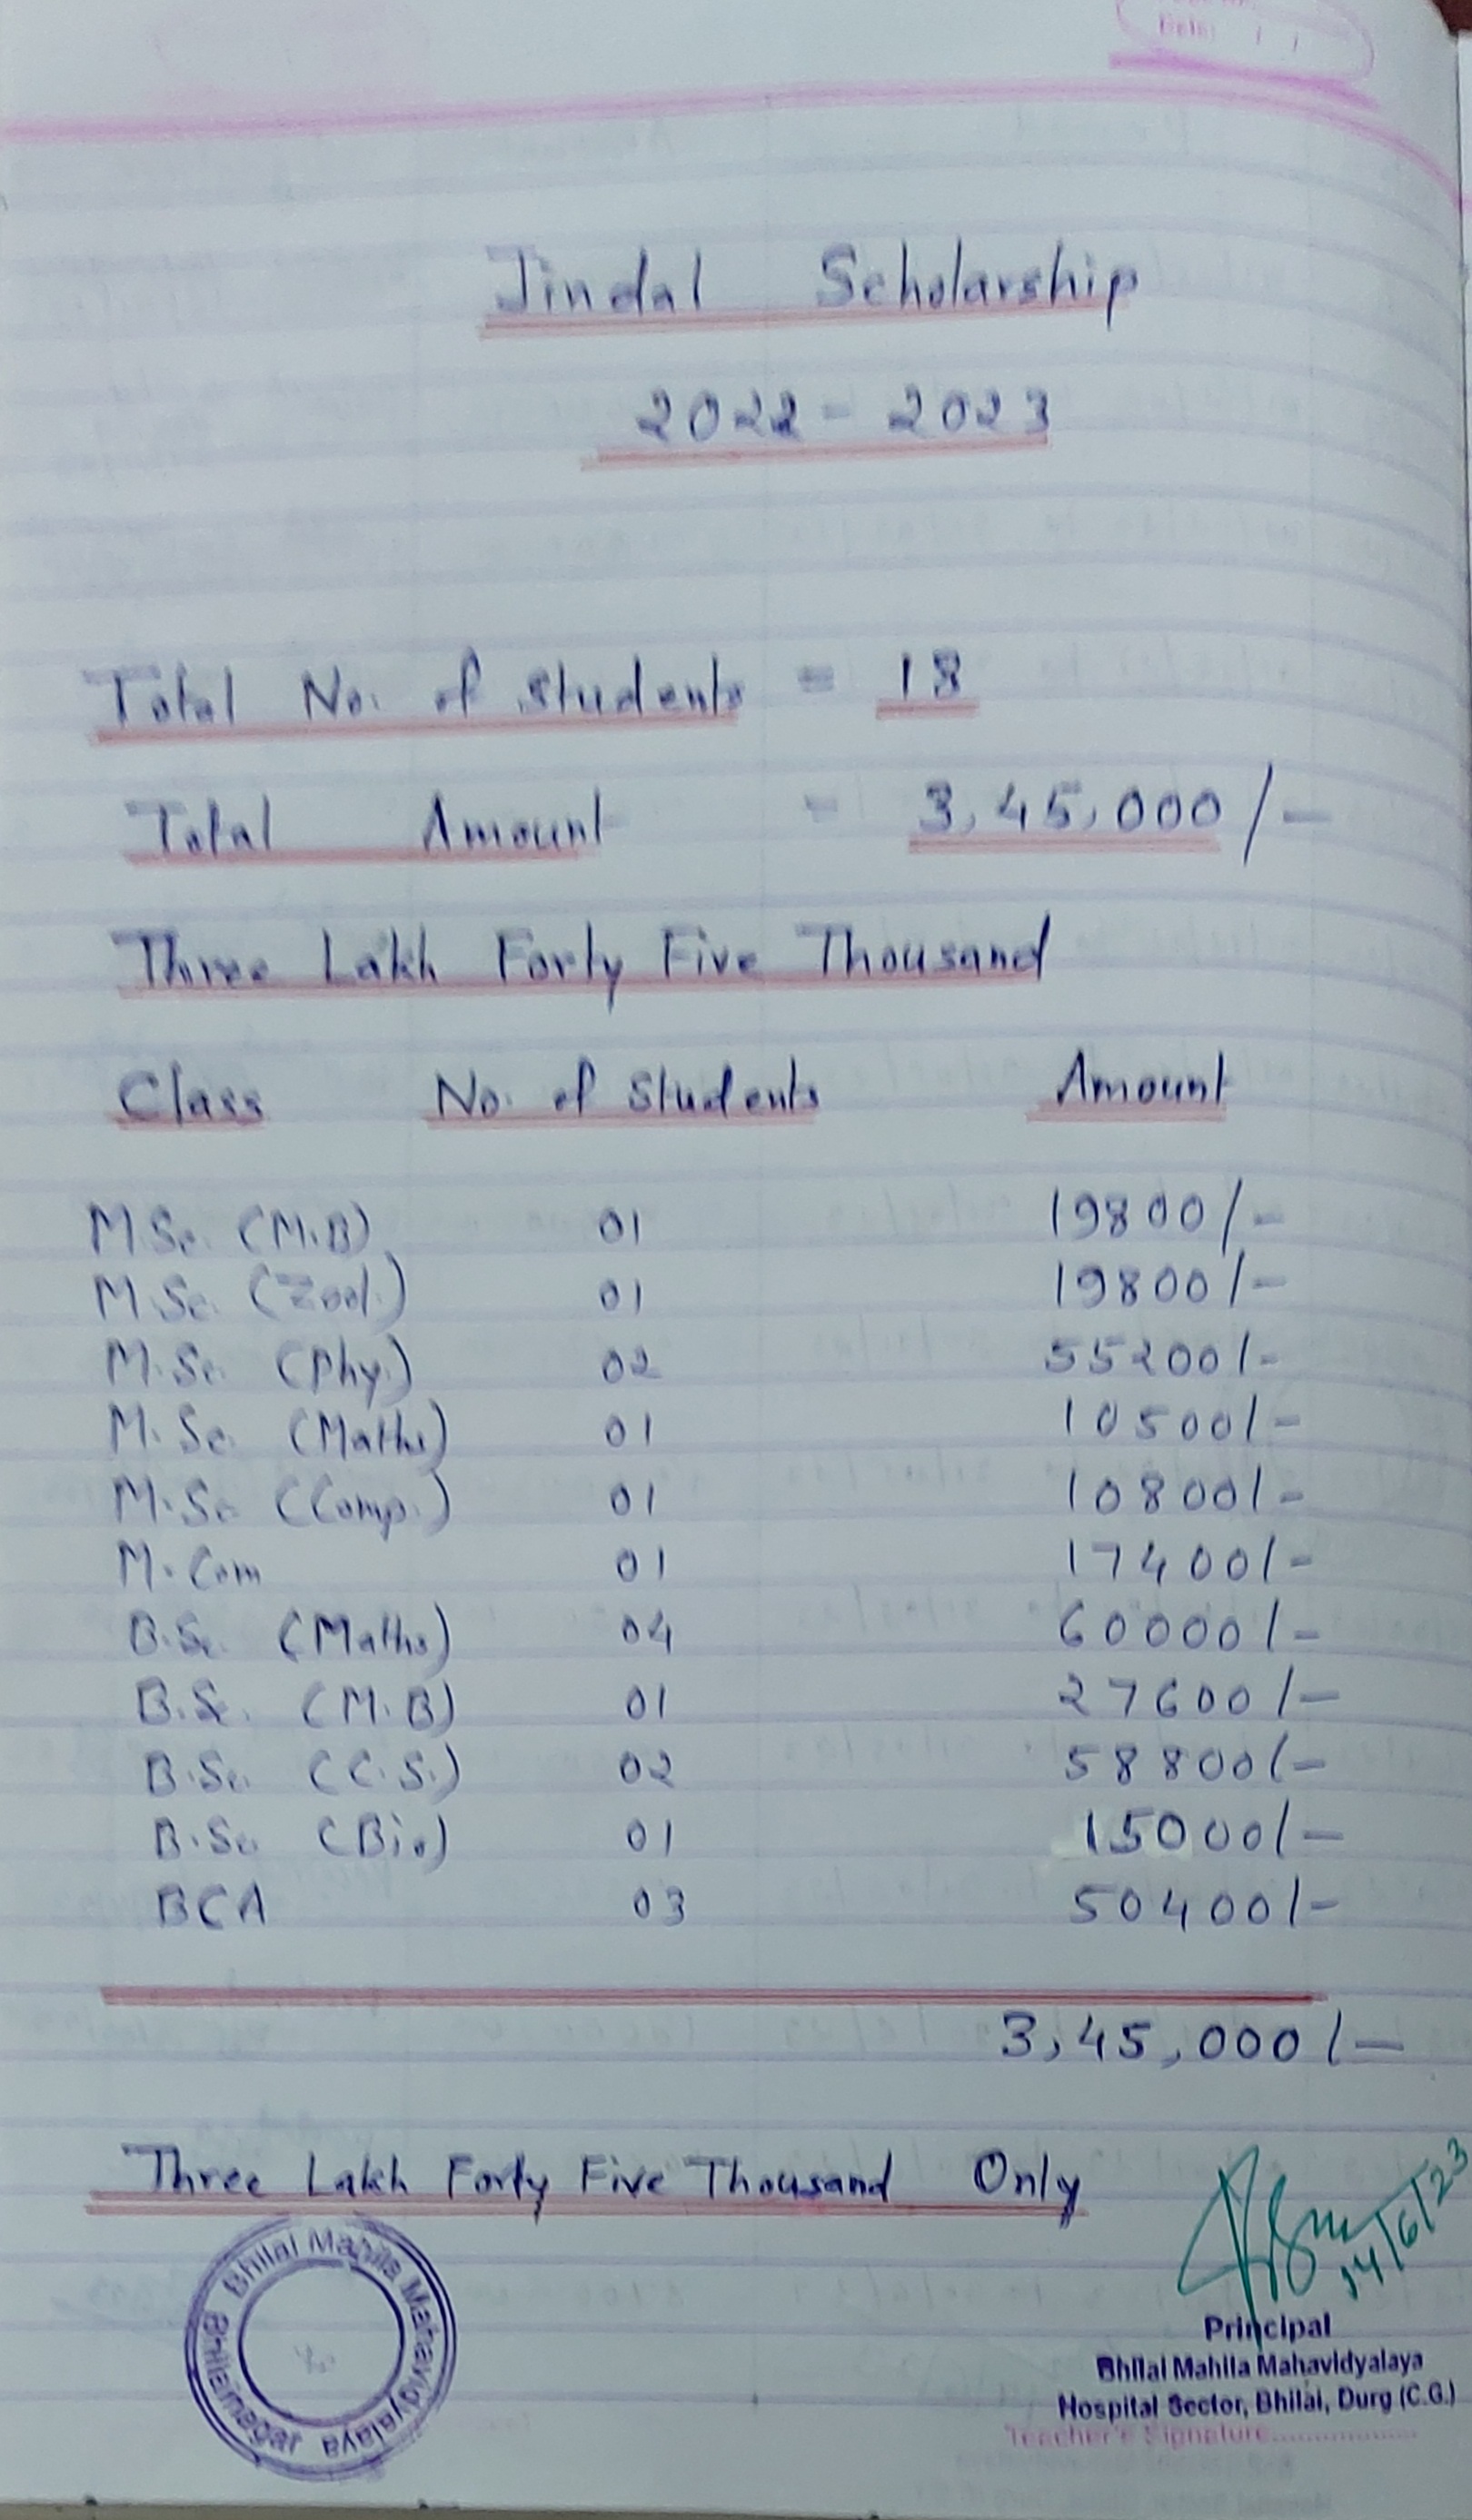 Jindal Scholarship
2022 - 2023
Total No. of Students = 18
Total Amount = 3,45,000/-
Three Lakh Forty Five Thousand
Class No. of Students Amount
M.Sc. (M.B) 01 19800/-
M.Sc. (Zool.) 01 19800/-
M.Sc. (Phy.) 02 55200/-
M.Sc. (Maths) 01 10500/-
M.Sc (Comp.) 01 10800/-
M.Com 01 17400/-
B.Sc. (Maths) 04 60000/-
B.Sc. (M.B) 01 27600/-
B.Sc. (C.S.) 02 58800/-
B.Sc (Bio) 01 15000/-
BCA 03 50400/-
3,45,000/-
Three Lakh Forty Five Thousand Only
14/6/23
Bhilai Mahila Mahavidyalaya
Bhilainagar
Principal
Bhilai Mahila Mahavidyalaya
Hospital Sector, Bhilai, Durg (C.G.)
Teacher's Signature..................